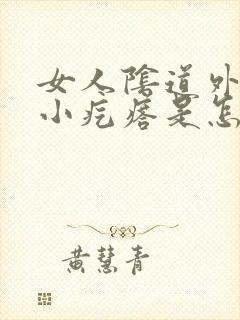 女人陰道外
小疙瘩是怎
黃慧青